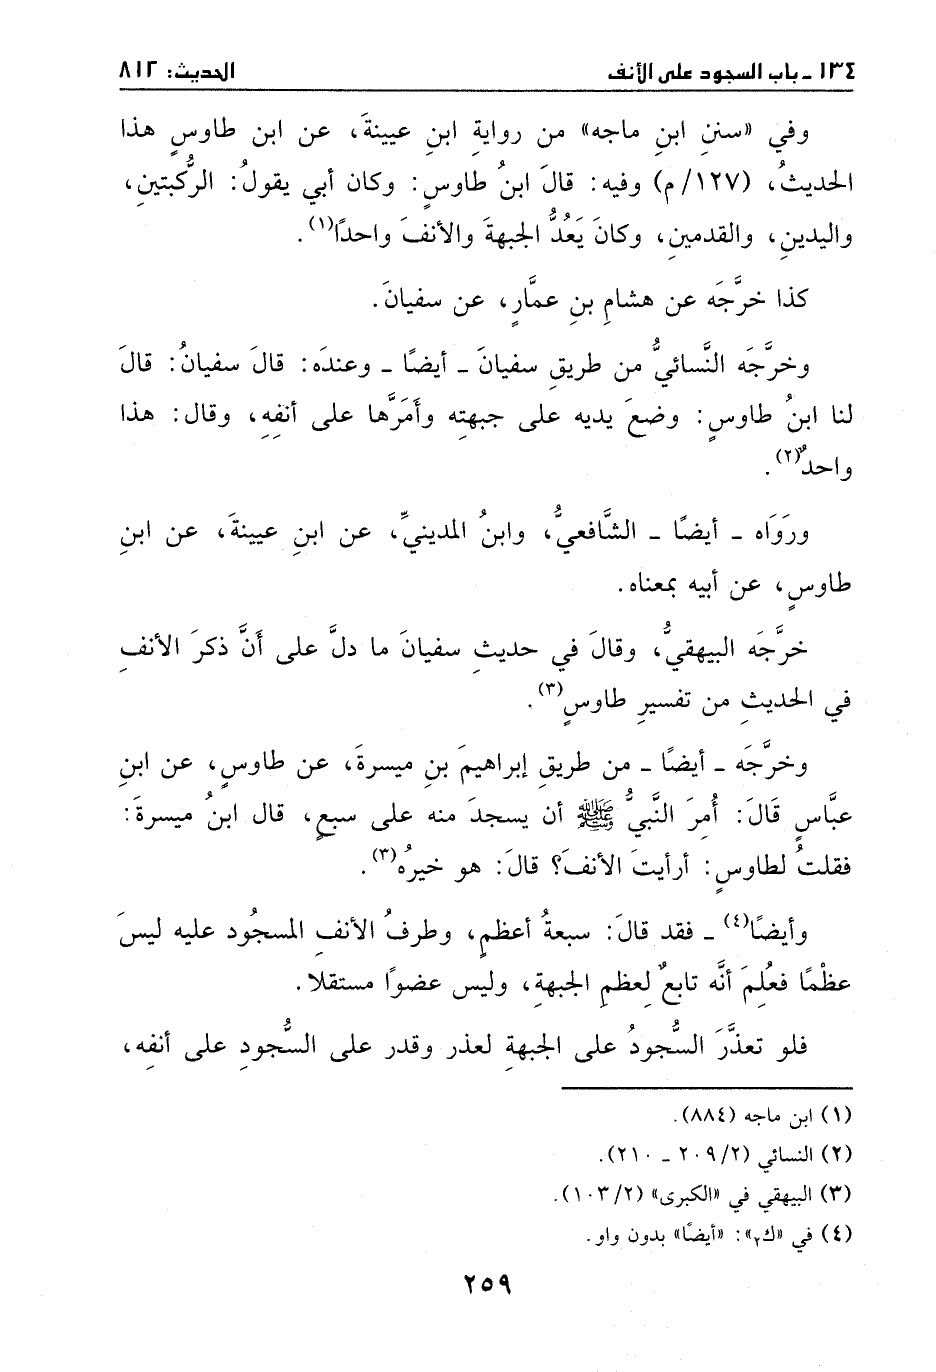 ١٣٤ - باب السجود على الأنف الحديث: ٨١٢
وفي «سننِ ابنِ ماجه» من روايةِ ابنِ عيينةَ، عن ابن طاوسٍ هذا
الحديثُ، (١٢٧/م) وفيه: قالَ ابنُ طاوسٍ: وكان أبي يقولُ: الرُّكبتينِ،
واليدينِ، والقدمينِ، وكانَ يَعُدُّ الجبهةَ والأنفَ واحدًا(١).
كذا خرَّجَه عن هشامِ بنِ عمَّارٍ، عن سفيانَ.
وخرَّجَه النَّسائيُّ من طريقِ سفيانَ - أيضًا - وعندَه: قالَ سفيانُ: قالَ
لنا ابنُ طاوسٍ: وضعَ يديه على جبهتِه وأمَرَّها على أنفِهِ، وقال: هذا
واحدٌ(٢).
ورَوَاه - أيضًا - الشَّافعيُّ، وابنُ المدينيِّ، عن ابنِ عيينةَ، عن ابنِ
طاوسٍ، عن أبيه بمعناه.
خرَّجَه البيهقيُّ، وقالَ في حديثِ سفيانَ ما دلَّ على أَنَّ ذكرَ الأنفِ
في الحديثِ من تفسيرِ طاوسٍ(٣).
وخرَّجَه - أيضًا - من طريقِ إبراهيمَ بنِ ميسرةَ، عن طاوسٍ، عن ابنِ
عبَّاسٍ قَالَ: أُمِرَ النَّبيُّ ﷺ أن يسجدَ منه على سبعٍ، قال ابنُ ميسرةَ:
فقلتُ لطاوسٍ: أرأيتَ الأنفَ؟ قالَ: هو خيرُه(٣).
وأيضًا(٤) - فقد قالَ: سبعةُ أعظمٍ، وطرفُ الأنفِ المسجُودِ عليه ليسَ
عظْمًا فعُلِمَ أنَّه تابعٌ لِعظمِ الجبهةِ، وليس عضوًا مستقلا.
فلو تعذَّرَ السُّجودُ على الجبهةِ لعذر وقدر على السُّجودِ على أنفِه،
(١) ابن ماجه (٨٨٤).
(٢) النسائي (٢/٢٠٩ - ٢١٠).
(٣) البيهقي في «الكبرى» (٢/١٠٣).
(٤) في «ك٢»: «أيضًا» بدون واو.
٢٥٩